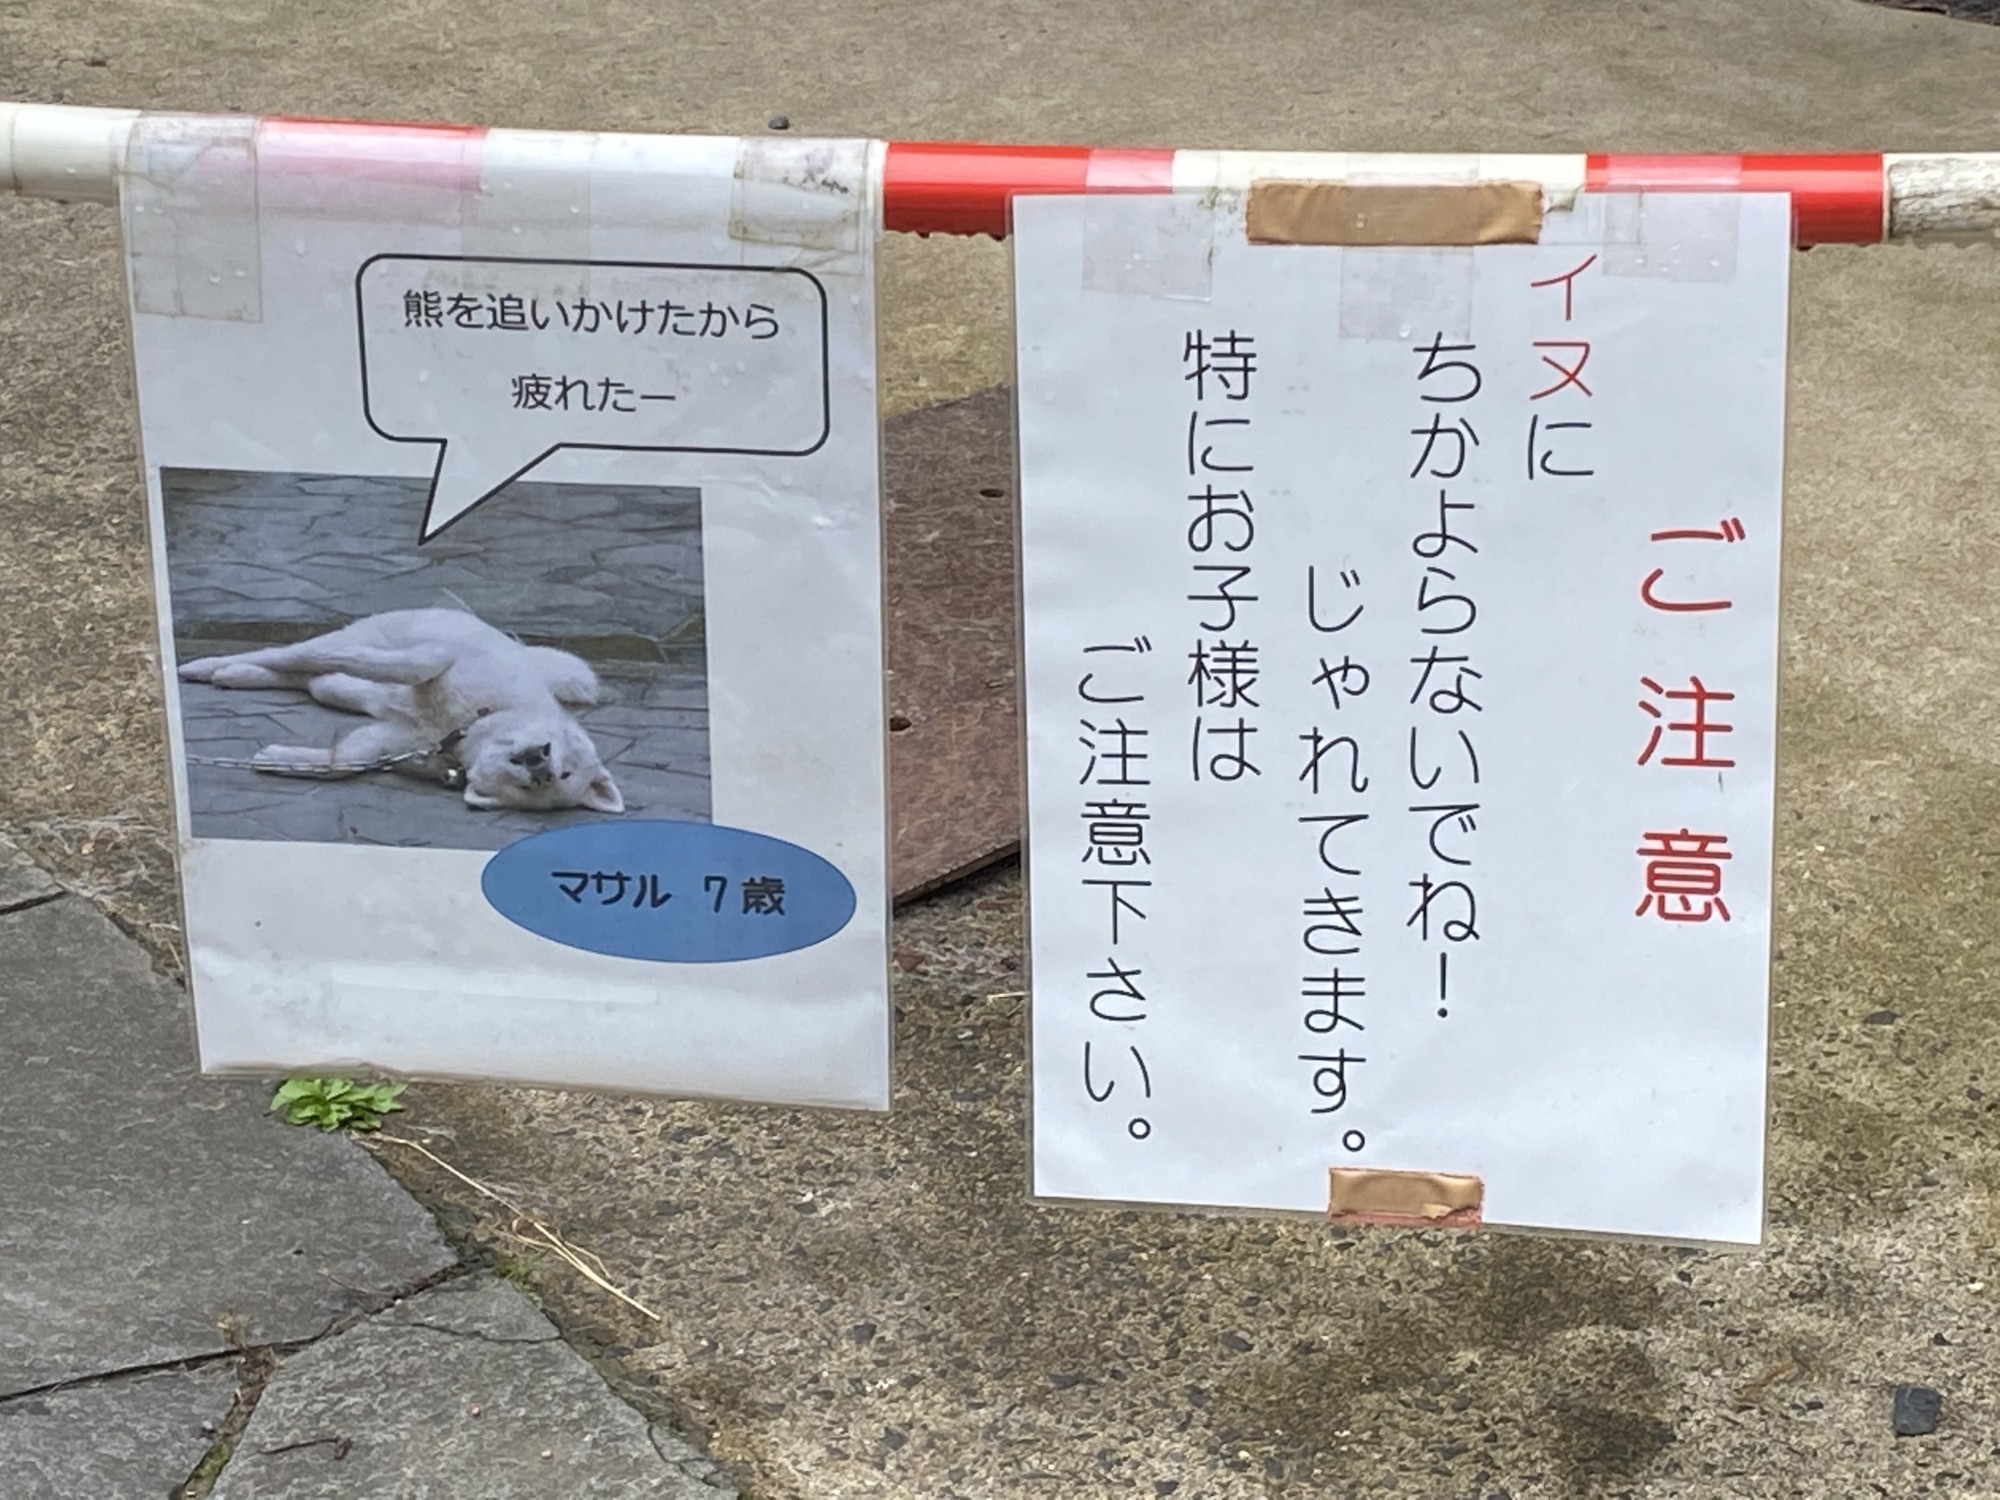 熊を追いかけたから
疲れたー
マサル 7歳
ご注意
イヌに
ちかよらないでね！
じゃれてきます。
特にお子様は
ご注意下さい。